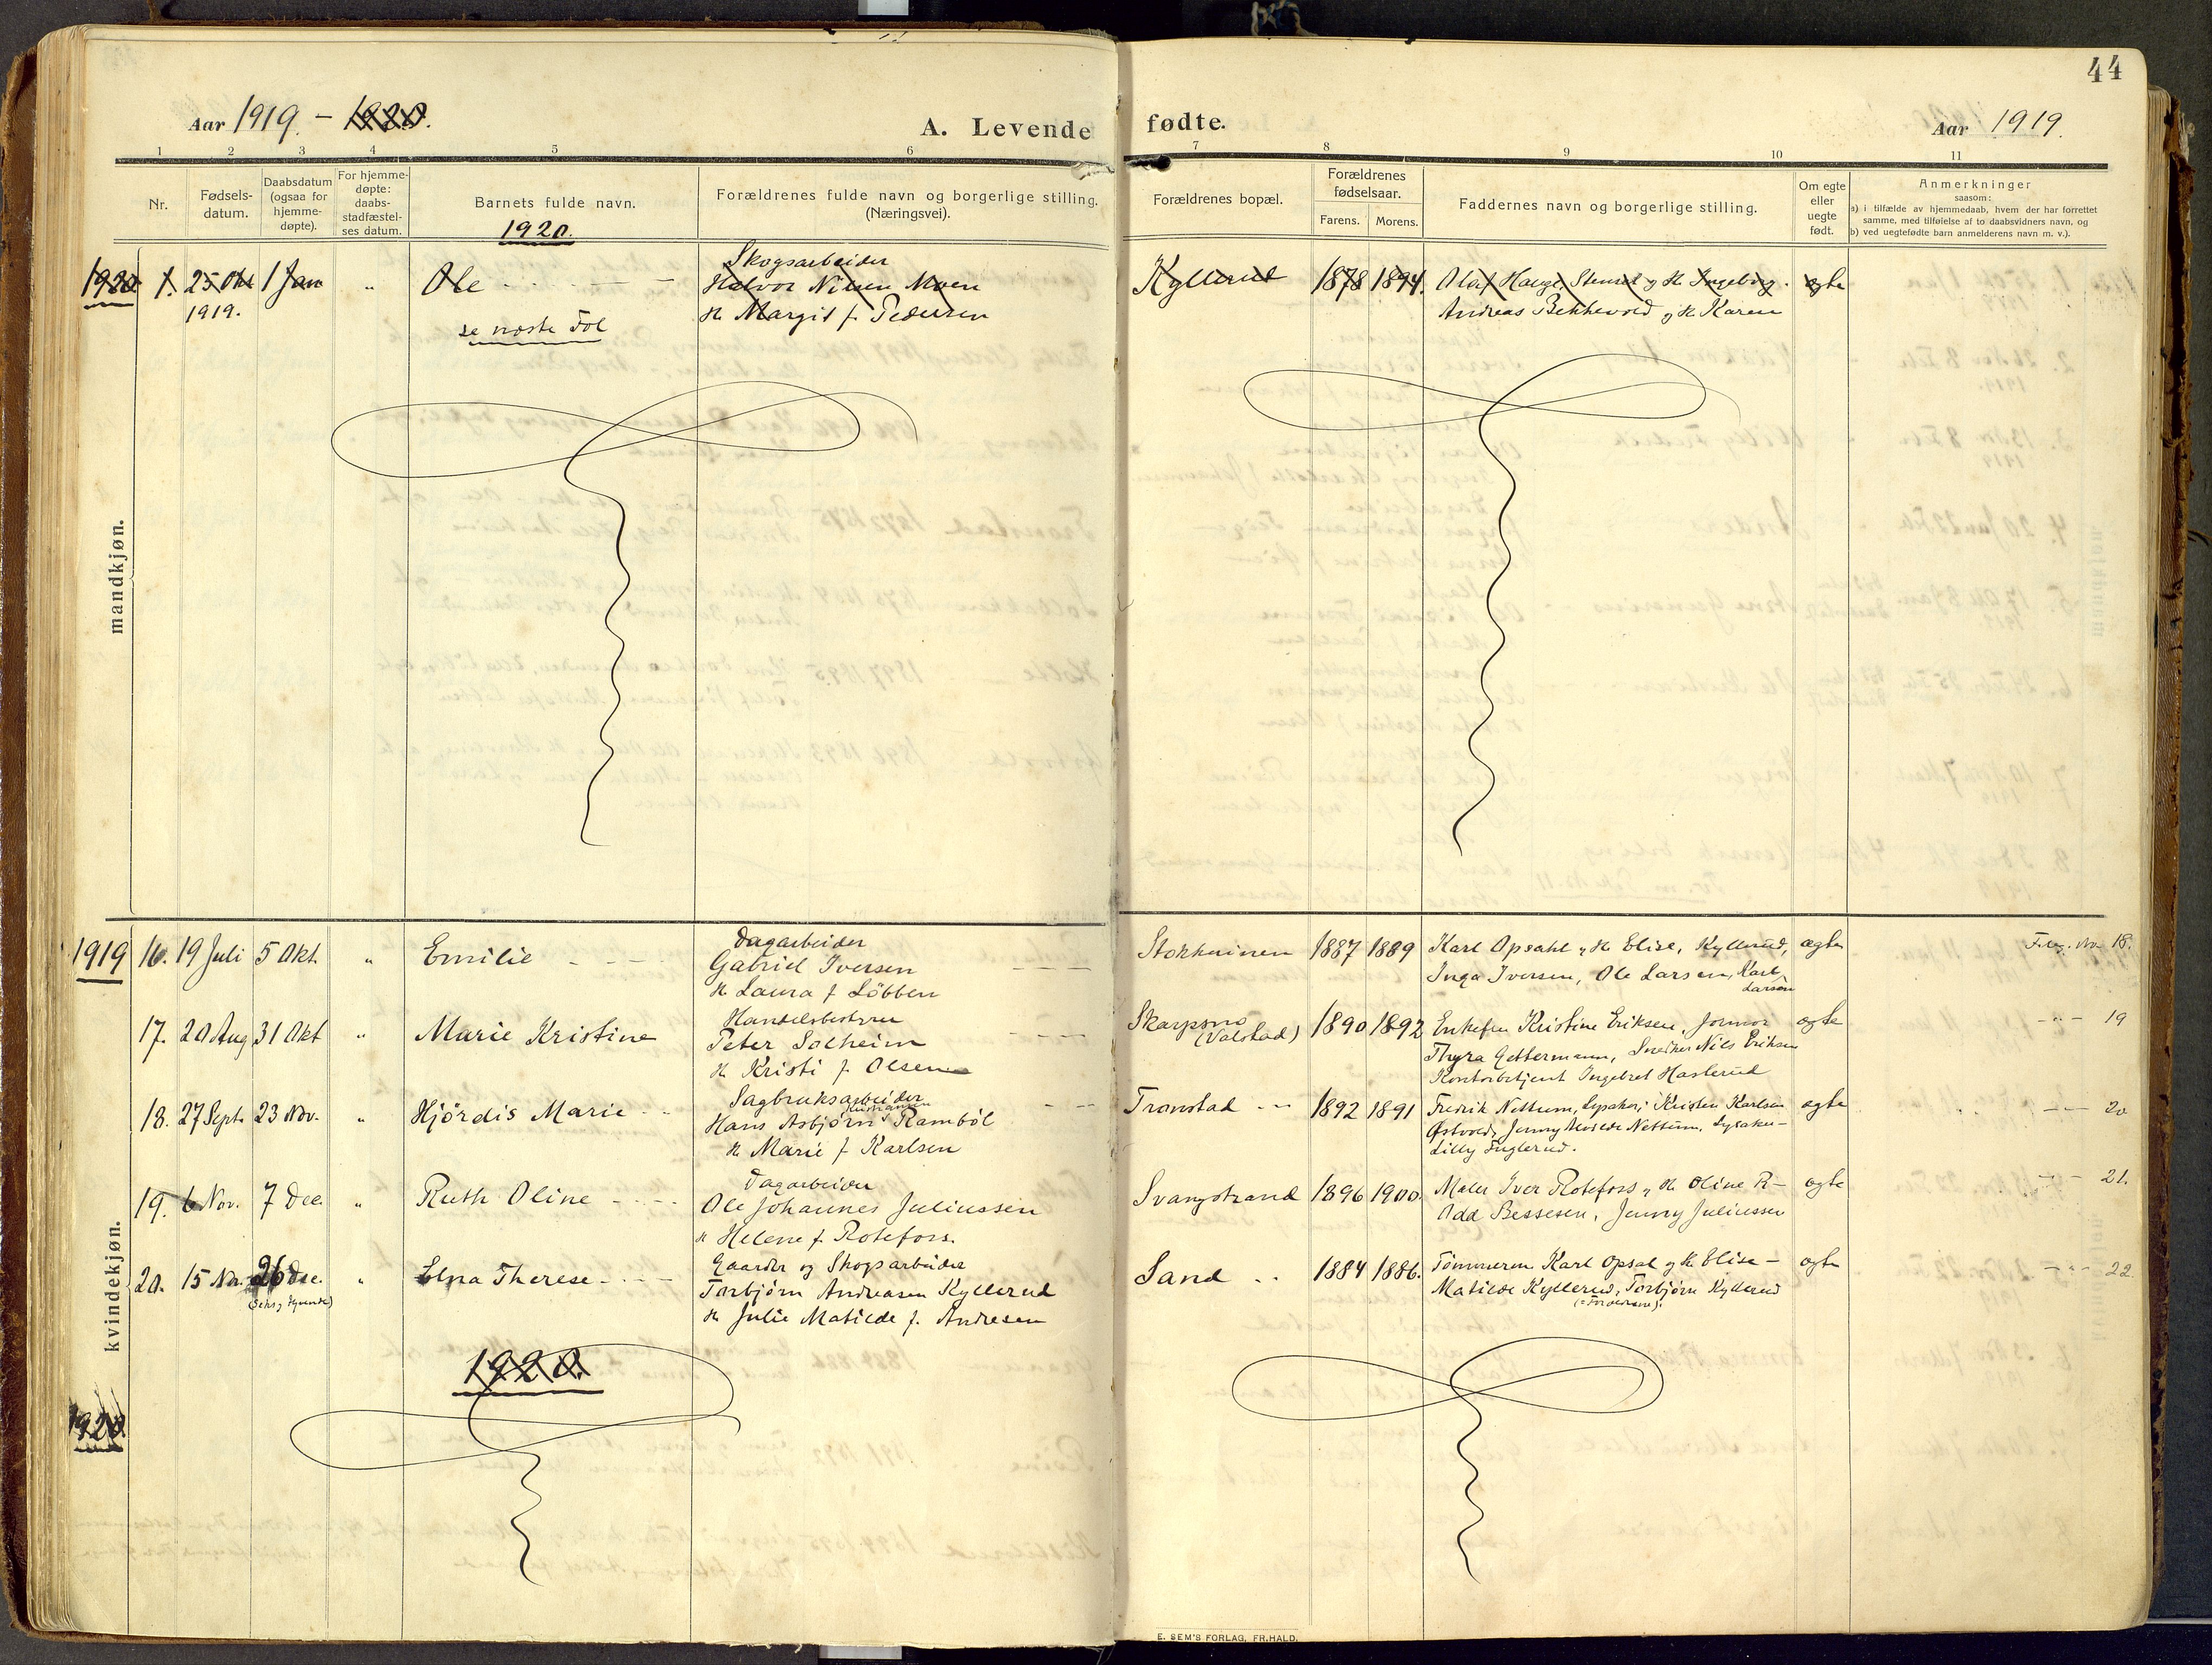 44
Aar 1919. - 1920.
A. Levende fødte.
Aar 1919.
1 2 3 4 5 6 7 8 9 10 11
Nr.
Fødsels-
datum.
Daabsdatum
(ogsaa for
hjemme-
døpte).
For hjemme-
døpte:
daabs-
stadfæstel-
ses datum.
Barnets fulde navn.
1920.
Forældrenes fulde navn og borgerlige stilling.
(Næringsvei).
Forældrenes bopæl.
Forældrenes
fødselsaar.
Farens. Morens.
Faddernes navn og borgerlige stilling.
Om egte
eller
uegte
født.
Anmerkninger
saasom:
a) i tilfælde av hjemmedaab, hvem der har forrettet
samme, med tilføielse af to daabsvidners navn, og
b) ved uegtefødte barn anmelderens navn m. v.).
mandkjøn.
1920 1. 25 Okt 1 Jan " Ole
1919.
se næste Fol
Skogsarbeider
Halvor Nilsen Moen
H. Margit f. Pedersen
Kyllerud 1878 1894. Olaf Hauge, Stensrud og H. Ingeborg. egte
Andreas Bekkevold og H. Karen
kvindekjøn.
1919 16. 19 Juli 5 Okt. " Emilie
Dagarbeider
Gabriel Iversen
H. Laura f Löbben
Stokkerinen 1887 1889 Karl Opsahl og H. Elise, Kyllerud, egte
Inga Iversen, Ole Larsen, Karl
Larsen
18.
17. 20 Aug 31 Okt " Marie Kristine
Handelsbestyrer
Peter Solheim
H. Kristi f. Olsen
Skarpsno
(Valstad)
1890 1892 Enkefru Kristine Eriksen, Jormor egte
Thyra Gettermann, Snedker Nils Eriksen
Kontorbetjent Ingebret Haslerud
- " - 19
18. 27 Sept. 23 Nov. " Hjördis Marie
Sagbruksarbeider
Hans Asbjørn Kristiansen Ramböl
H. Marie f Karlsen
Tronstad 1892 1891 Fredrik Nettum, Lysaker, Kristen Karlsen egte
Østvold, Jenny Alvilde Nettum, Lysaker -
Lilly Fuglerud.
- " - 20
19. 6 Nov. 7 Dec. " Ruth Oline
Dagarbeider
Ole Johannes Juliussen
H. Helene f. Rotefoss.
Svangstrand 1896 1900. Maler Iver Rotefoss og H. Oline R- egte
Odd Bessesen, Jenny Juliussen
- " - 21.
20. 15 Nov. 26 Dec. " Elna Therese
(Seks og tyvende)
Gaardbr og Skogsarbeider
Torbjørn Andreasen Kyllerud
H. Julie Matilde f. Andresen
Sand 1884 1886. Tömmerm Karl Opsal og H. Elise - egte
Matilde Kyllerud, Torbjørn Kyllerud
(= Forældrene).
- " - 22.
1920.
1920.
E. SEM'S FORLAG, FR.HALD.